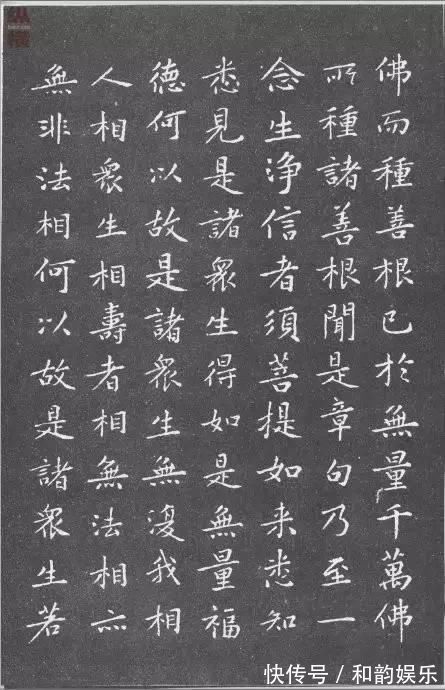 佛而種善根已於無量千萬佛
所種諸善根聞是章句乃至一
念生淨信者須菩提如来悉知
悉見是諸眾生得如是無量福
德何以故是諸眾生無復我相
人相眾生相壽者相無法相亦
無非法相何以故是諸眾生若
快传号/和韵娱乐